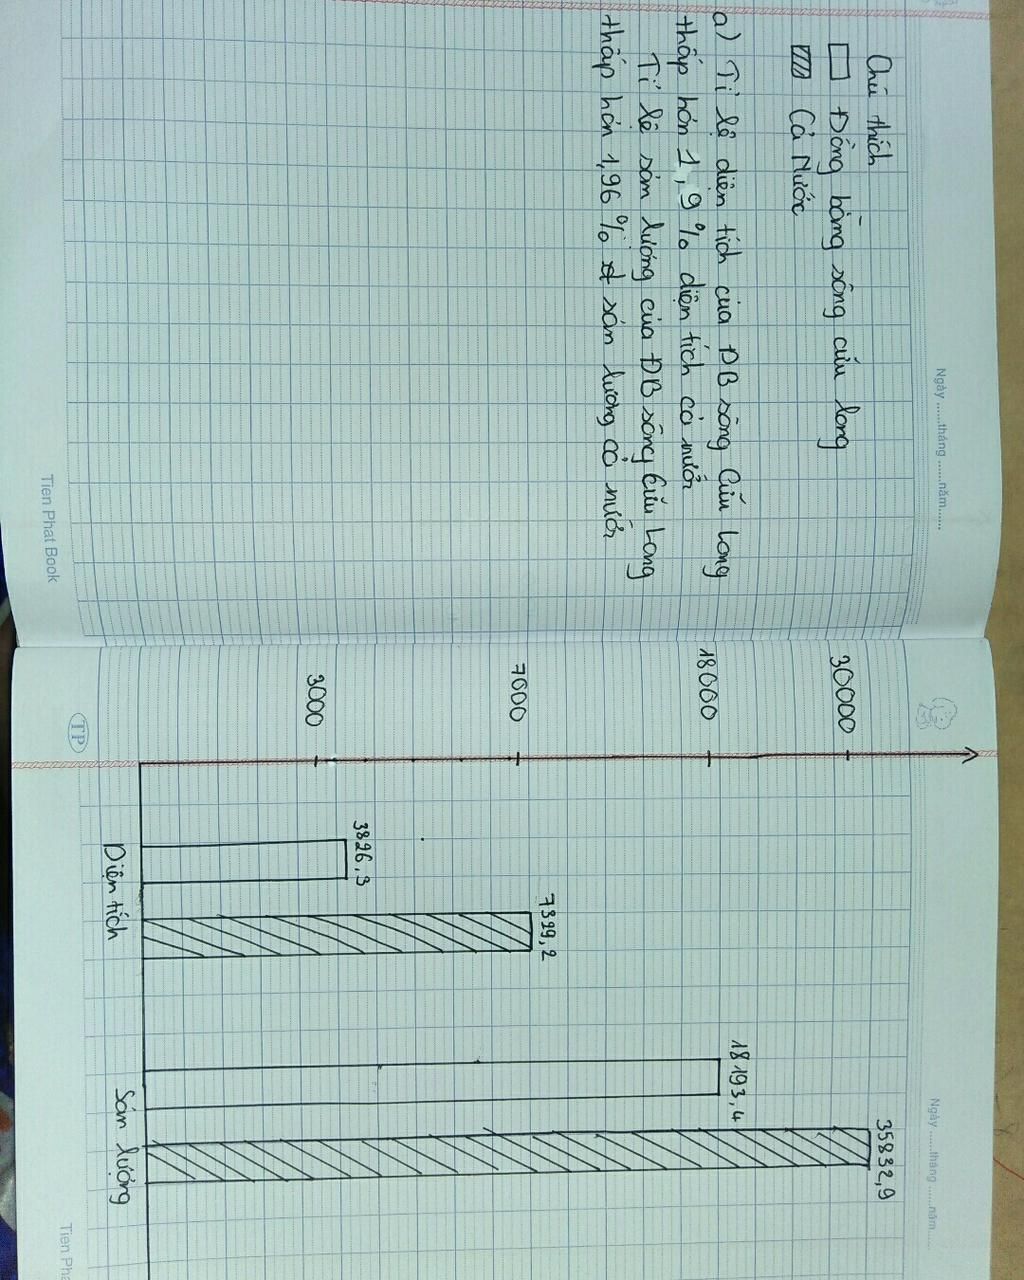 Ngày ......tháng ......năm......
Chú thích
Đồng bằng sông cửu long
Cả Nước
a) Tỉ lệ diện tích của ĐB sông Cửu Long
thấp hơn 1,9% diện tích cả nước
Tỉ lệ sản lượng của ĐB sông Cửu Long
thấp hơn 1,96% sản lượng cả nước
Tien Phat Book
Ngày ......tháng ......năm......
30000
18000
7000
3000
3826,3
7329,2
18193,4
35832,9
Diện tích
Sản lượng
TP
Tien Pha